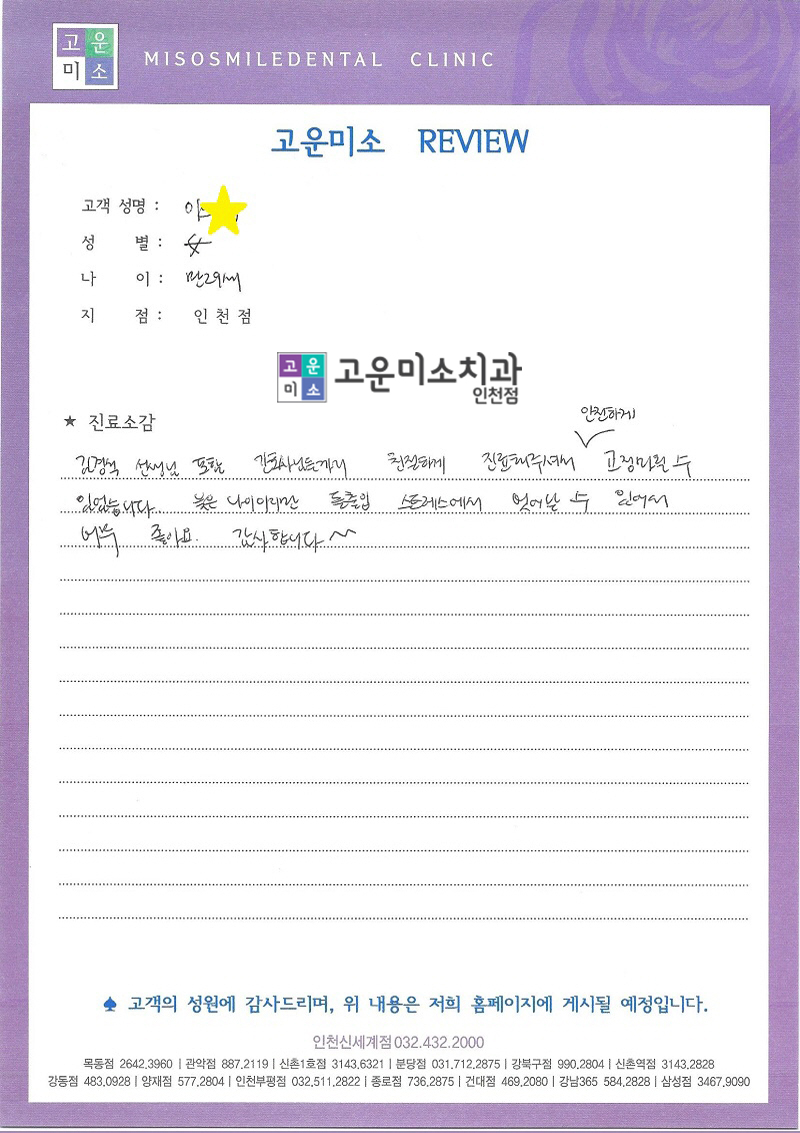 고운
미소
MISOSMILEDENTAL CLINIC
고운미소 REVIEW
고객 성명 : 이
성 별 : 女
나 이 : 만29세
지 점 : 인천점
고운
미소
고운미소치과
인천점
★ 진료소감
안전하게
김경석 선생님 포함 간호사님들께서 친절하게 진료해주셔서 교정마칠 수
있었습니다. 늦은 나이이지만 돌출입 스트레스에서 벗어날 수 있어서
너무 좋아요. 감사합니다~
♠ 고객의 성원에 감사드리며, 위 내용은 저희 홈페이지에 게시될 예정입니다.
인천신세계점 032.432.2000
목동점 2642.3960 | 관악점 887.2119 | 신촌1호점 3143.6321 | 분당점 031.712.2875 | 강북구점 990.2804 | 신촌역점 3143.2828
강동점 483.0928 | 양재점 577.2804 | 인천부평점 032.511.2822 | 종로점 736.2875 | 건대점 469.2080 | 강남365 584.2828 | 삼성점 3467.9090